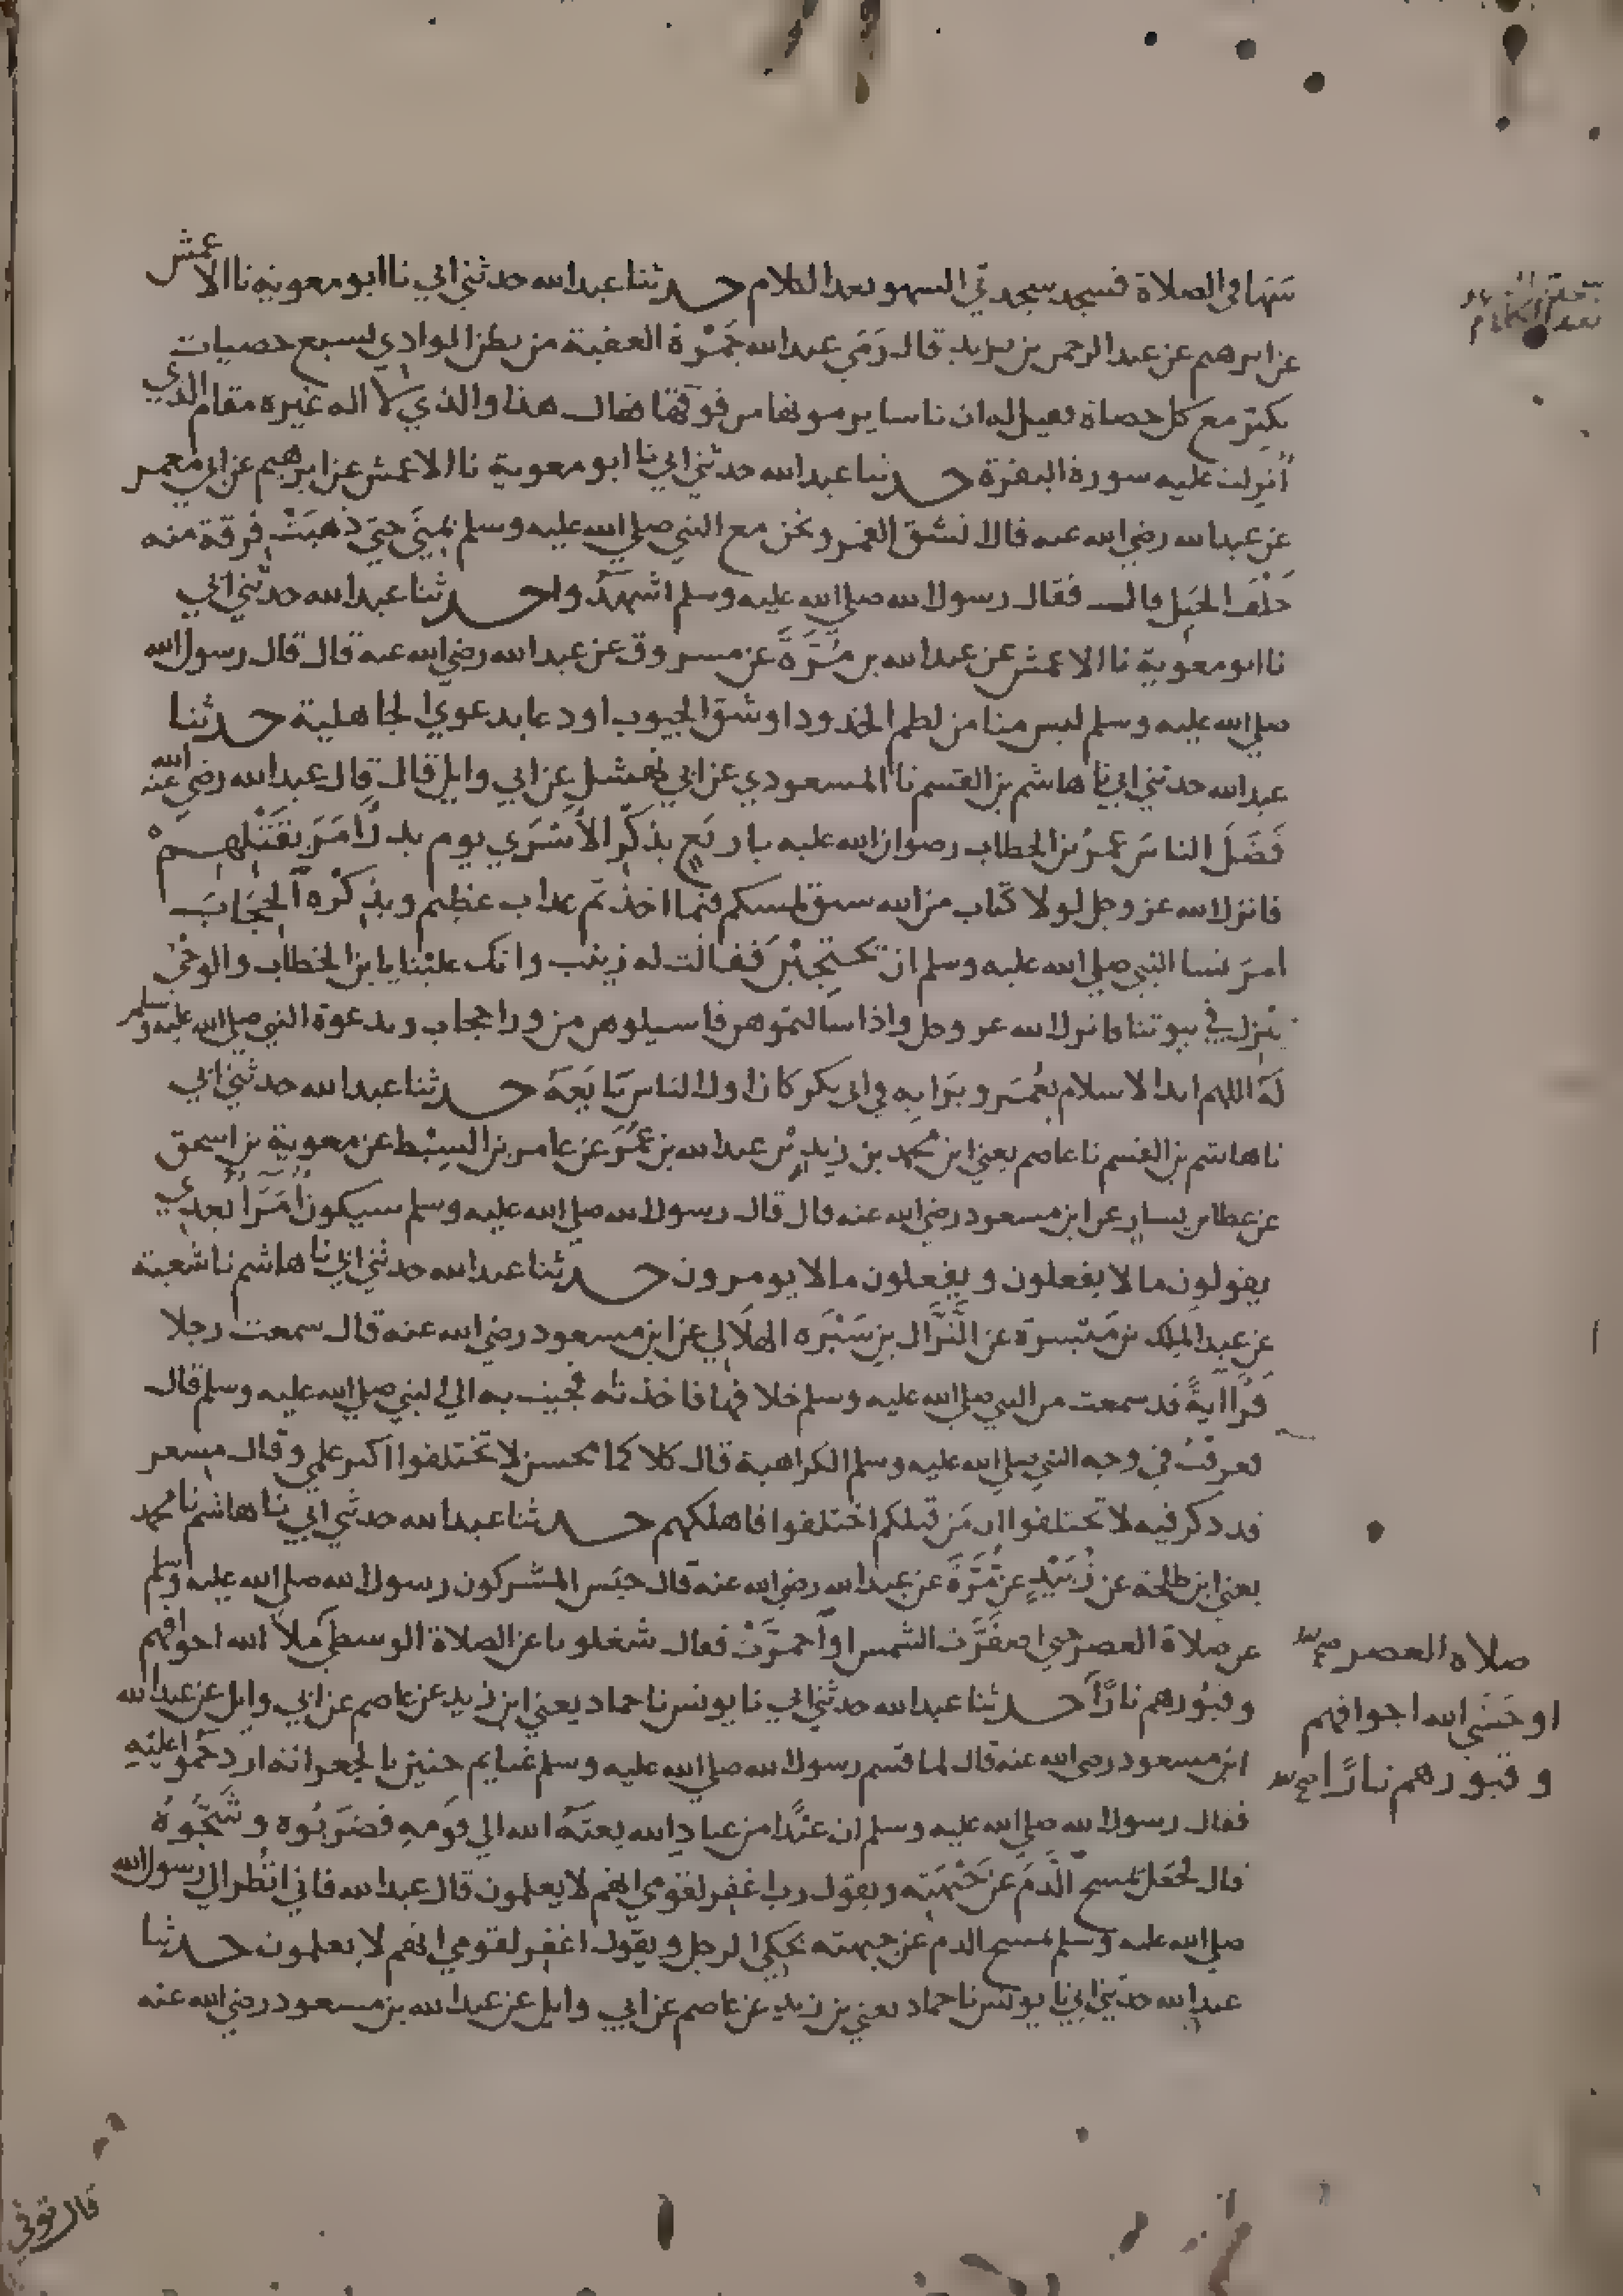 سَهَا في الصلاة فسجد سجدتي السهو بعد الكلام حدثنا عبد الله حدثني ابي نا ابو معوية نا الاعمش
عن ابرهيم عن عبد الرحمن بن يزيد قال رَمَى عبد الله جَمْرَة العقبة من بطن الوادي بسبع حصيات
يكبّر مع كل حصاة فقيل له ان ناسا يرمونها من فوقها فقال هذا والذي لا اله غيره مقام الذي
اُنزلت عليه سورة البقرة حدثنا عبد الله حدثني ابي نا ابو معوية نا الاعمش عن ابرهيم عن ابي معمر
عن عبد الله رضي الله عنه قال انشق القمر ونحن مع النبي صلي الله عليه وسلم بمنًي حتي ذهبَتْ فرقة منه
خَلْفَ الجبَل قال فقال رسول الله صلي الله عليه وسلم اشهدُوا حدثنا عبد الله حدثني ابي
نا ابو معوية نا الاعمش عن عبد الله بن مُرَّةَ عن مسروق عن عبد الله رضي الله عنه قال قال رسول الله
صلي الله عليه وسلم ليس منا من لطم الخدود او شق الجيوب او دعا بدعوي الجاهلية حدثنا
عبد الله حدثني ابي نا هاشم بن القسم نا المسعودي عن ابي نهشل عن ابي وايل قال قال عبد الله رضي الله عنه
فَضَلَ الناسَ عمرُ بن الخطاب رضوان الله عليه باربَعٍ بذكْرِ الاَسْرَي يوم بدر اَمَرَ بقَتْلهِمْ
فانزل الله عز وجل لولا كتاب من الله سبق لمسكم فيما اخذتم عذاب عظيم وبذكْرِه الحِجَابَ
امرَ نسا النبي صلي الله عليه وسلم ان يحتجبْنَ فقالت له زينب وانك علَيْنا يا بن الخطاب والوحْيُ
ينزل في بيوتنا فانزل الله عز وجل واذا سالتموهن فاسيلوهن من ورا حجاب وبدعوة النبي صلي الله عليه وسلم
لَهُ اللهم ايد الاسلام بعُمَر وبرَايهِ في ابي بكر كان اول الناس بَايَعَهُ حدثنا عبد الله حدثني ابي
نا هاشم بن القسم نا عاصم يعني ابن محمد بن زيدِ بْنِ عبد الله بن عُمَرَ عن عامر بن السِمْط عن معوية بن اسحق
عن عطا بن يسار عن ابن مسعود رضي الله عنه قال قال رسول الله صلي الله عليه وسلم سيكون اُمَرَاُ بعدي
يقولون ما لا يفعلون ويفعلون ما لا يومرون حدثنا عبد الله حدثني ابي نا هاشم نا شعبة
عن عبد الملِك بن مَيْسرَة عن النَّزَّال بن سَبْرَه الهلاَلي عن ابن مسعود رضي الله عنه قال سمعت رجلا
قرَا ايةً قد سمعت من النبي صلي الله عليه وسلم خلافها فاخذته فجيت به الي النبي صلي الله عليه وسلم قال
فعرفتُ في وجه النبي صلي الله عليه وسلم الكراهية قال كلاكما محسن لا تختلفوا اكبر علمي وقال مسعر
قد ذكر فيه لا تختلفوا ان مَن قبلكم اختلفوا فاهلكهم حدثنا عبد الله حدثني ابي نا هاشم نا محمد
يعني ابن طلحة عن زُبَيْدٍ عن مُرَّةَ عن عبد الله رضي الله عنه قال حبَس المشركون رسول الله صلي الله عليه وسلم
عن صلاة العصر حتي اصفَرَّت الشمس او احمرَّتْ فقال شغلونا عن الصلاة الوسطي ملاَ الله اجوافهم
وقبُورهم نارًا حدثنا عبد الله حدثني ابي نا يونس نا حماد يعني ابن زيد عن عاصم عن ابي وايل عن عبد الله
ابن مسعود رضي الله عنه قال لما قسم رسول الله صلي الله عليه وسلم غنايم حنين بالجعرانة ازدحَمُوا عليه
فقال رسول الله صلي الله عليه وسلم ان عَبْدًا من عبادِ الله بعثَهُ الله الي قومهِ فضرَبُوه وشَجُّوهُ
قال فجعَل يمسح الدمَ عن جَبْهته ويقول رب اغفر لقومي انهم لا يعلمون قال عبد الله فاني انظُر الي رسول الله
صلي الله عليه وسلم يمسح الدم عن جبهته يحكي الرجل ويقول اغفر لقومي انهم لا يعلمون حدثنا
عبد الله حدثني ابي نا يونس نا حماد يعني بن زيد عن عاصم عن ابي وايل عن عبد الله بن مسعود رضي الله عنه
صلاه العصر صح
او حَشَي الله اجوافهم
وقبورهم نارًا صح
قال توفي